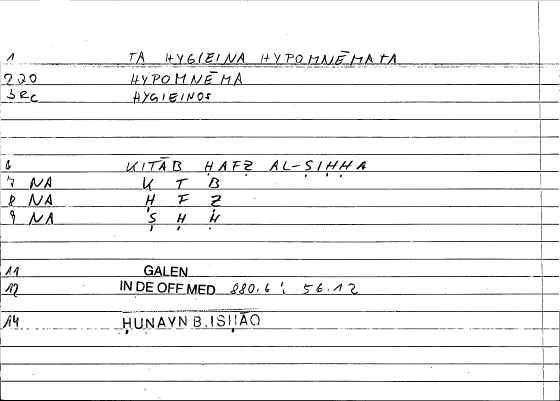 1 TA HYGIEINA HYPOMNĒMATA
220 HYPOMNĒMA
SEC HYGIEINOS
6 KITĀB ḤAFẒ AL-ṢIḤḤA
7 NA K T B
8 NA Ḥ F Ẓ
9 NA Ṣ Ḥ Ḥ
11 GALEN
12 IN DE OFF MED 880.6 ; 56.12
14 ḤUNAYN B. ISḤĀQ